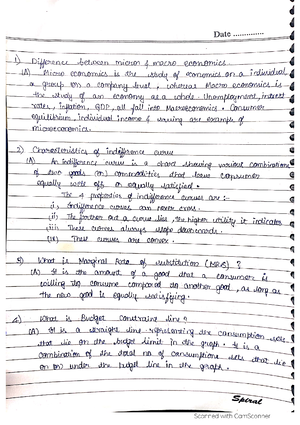 Date ............
1) Difference between micron & macro economics.
(A) Micro economics is the study of economics on a individual,
a group or company level, whereas Macro economics is
the study of an economy as a whole. Unemployment, interest
rates, inflation, GDP, all fall into Macroeconomics. Consumer
equilibrium, individual income & saving are example of
microeconomics.
2) Characteristics of indifference curves
(A) An indifference curve is a chart showing various combinations
of two goods (or) commodities that leave consumer
equally well off or equally satisfied.
The 4 properties of indifference curves are :-
(i) Indifference curves can never cross.
(ii) The farther out a curve lies, the higher utility it indicates
(iii) These curves always slope downwards.
(iv) These curves are convex.
3) What is Marginal Rate of substitution (MRS) ?
(A) It is the amount of a good that a consumer is
willing to consume compared to another good, as long as
the new good is equally satisfying.
4) What is Budget constraint line?
(A) It is a straight line representing the consumption sets
that lie on the budget limit in the graph. It is a
combination of the total no of consumptions sets that lie
on (or) under the budget line in the graph.
Spiral
Scanned with CamScanner